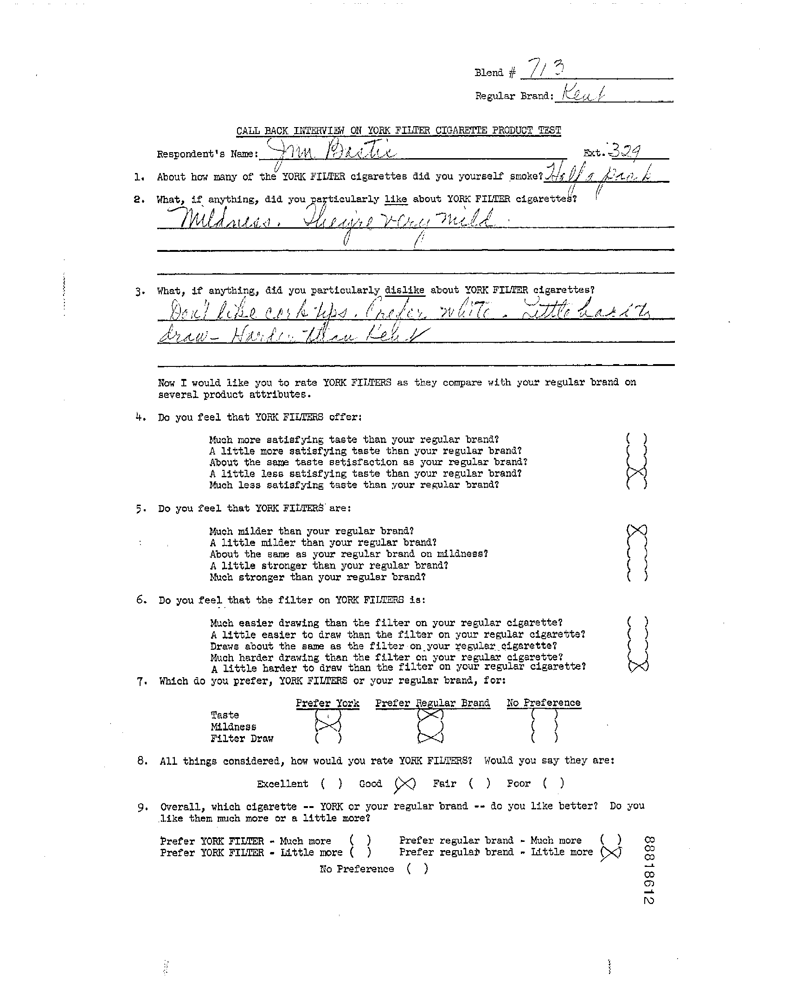 Blend # 713
Regular Brand: Kent
CALL BACK INTERVIEW ON YORK FILTER CIGARETTE PRODUCT TEST
Respondent's Name: Ext. 329
1. About how many of the YORK FILTER cigarettes did you yourself smoke? Half a pack
2. What, if anything, did you particularly like about YORK FILTER cigarettes?
Mildness. They're very mild.
3. What, if anything, did you particularly dislike about YORK FILTER cigarettes?
Don't like cork tips. Prefer white. Little hard to
draw - Harder than Kent
Now I would like you to rate YORK FILTERS as they compare with your regular brand on
several product attributes.
4. Do you feel that YORK FILTERS offer:
Much more satisfying taste than your regular brand? ( )
A little more satisfying taste than your regular brand? ( )
About the same taste satisfaction as your regular brand? ( )
A little less satisfying taste than your regular brand? (X)
Much less satisfying taste than your regular brand? ( )
5. Do you feel that YORK FILTERS are:
Much milder than your regular brand? (X)
A little milder than your regular brand? ( )
About the same as your regular brand on mildness? ( )
A little stronger than your regular brand? ( )
Much stronger than your regular brand? ( )
6. Do you feel that the filter on YORK FILTERS is:
Much easier drawing than the filter on your regular cigarette? ( )
A little easier to draw than the filter on your regular cigarette? ( )
Draws about the same as the filter on your regular cigarette? ( )
Much harder drawing than the filter on your regular cigarette? ( )
A little harder to draw than the filter on your regular cigarette? (X)
7. Which do you prefer, YORK FILTERS or your regular brand, for:
Prefer York Prefer Regular Brand No Preference
Taste ( ) (X) ( )
Mildness (X) ( ) ( )
Filter Draw ( ) (X) ( )
8. All things considered, how would you rate YORK FILTERS? Would you say they are:
Excellent ( ) Good (X) Fair ( ) Poor ( )
9. Overall, which cigarette -- YORK or your regular brand -- do you like better? Do you
like them much more or a little more?
Prefer YORK FILTER - Much more ( ) Prefer regular brand - Much more ( )
Prefer YORK FILTER - Little more ( ) Prefer regular brand - Little more (X)
No Preference ( )
88818612